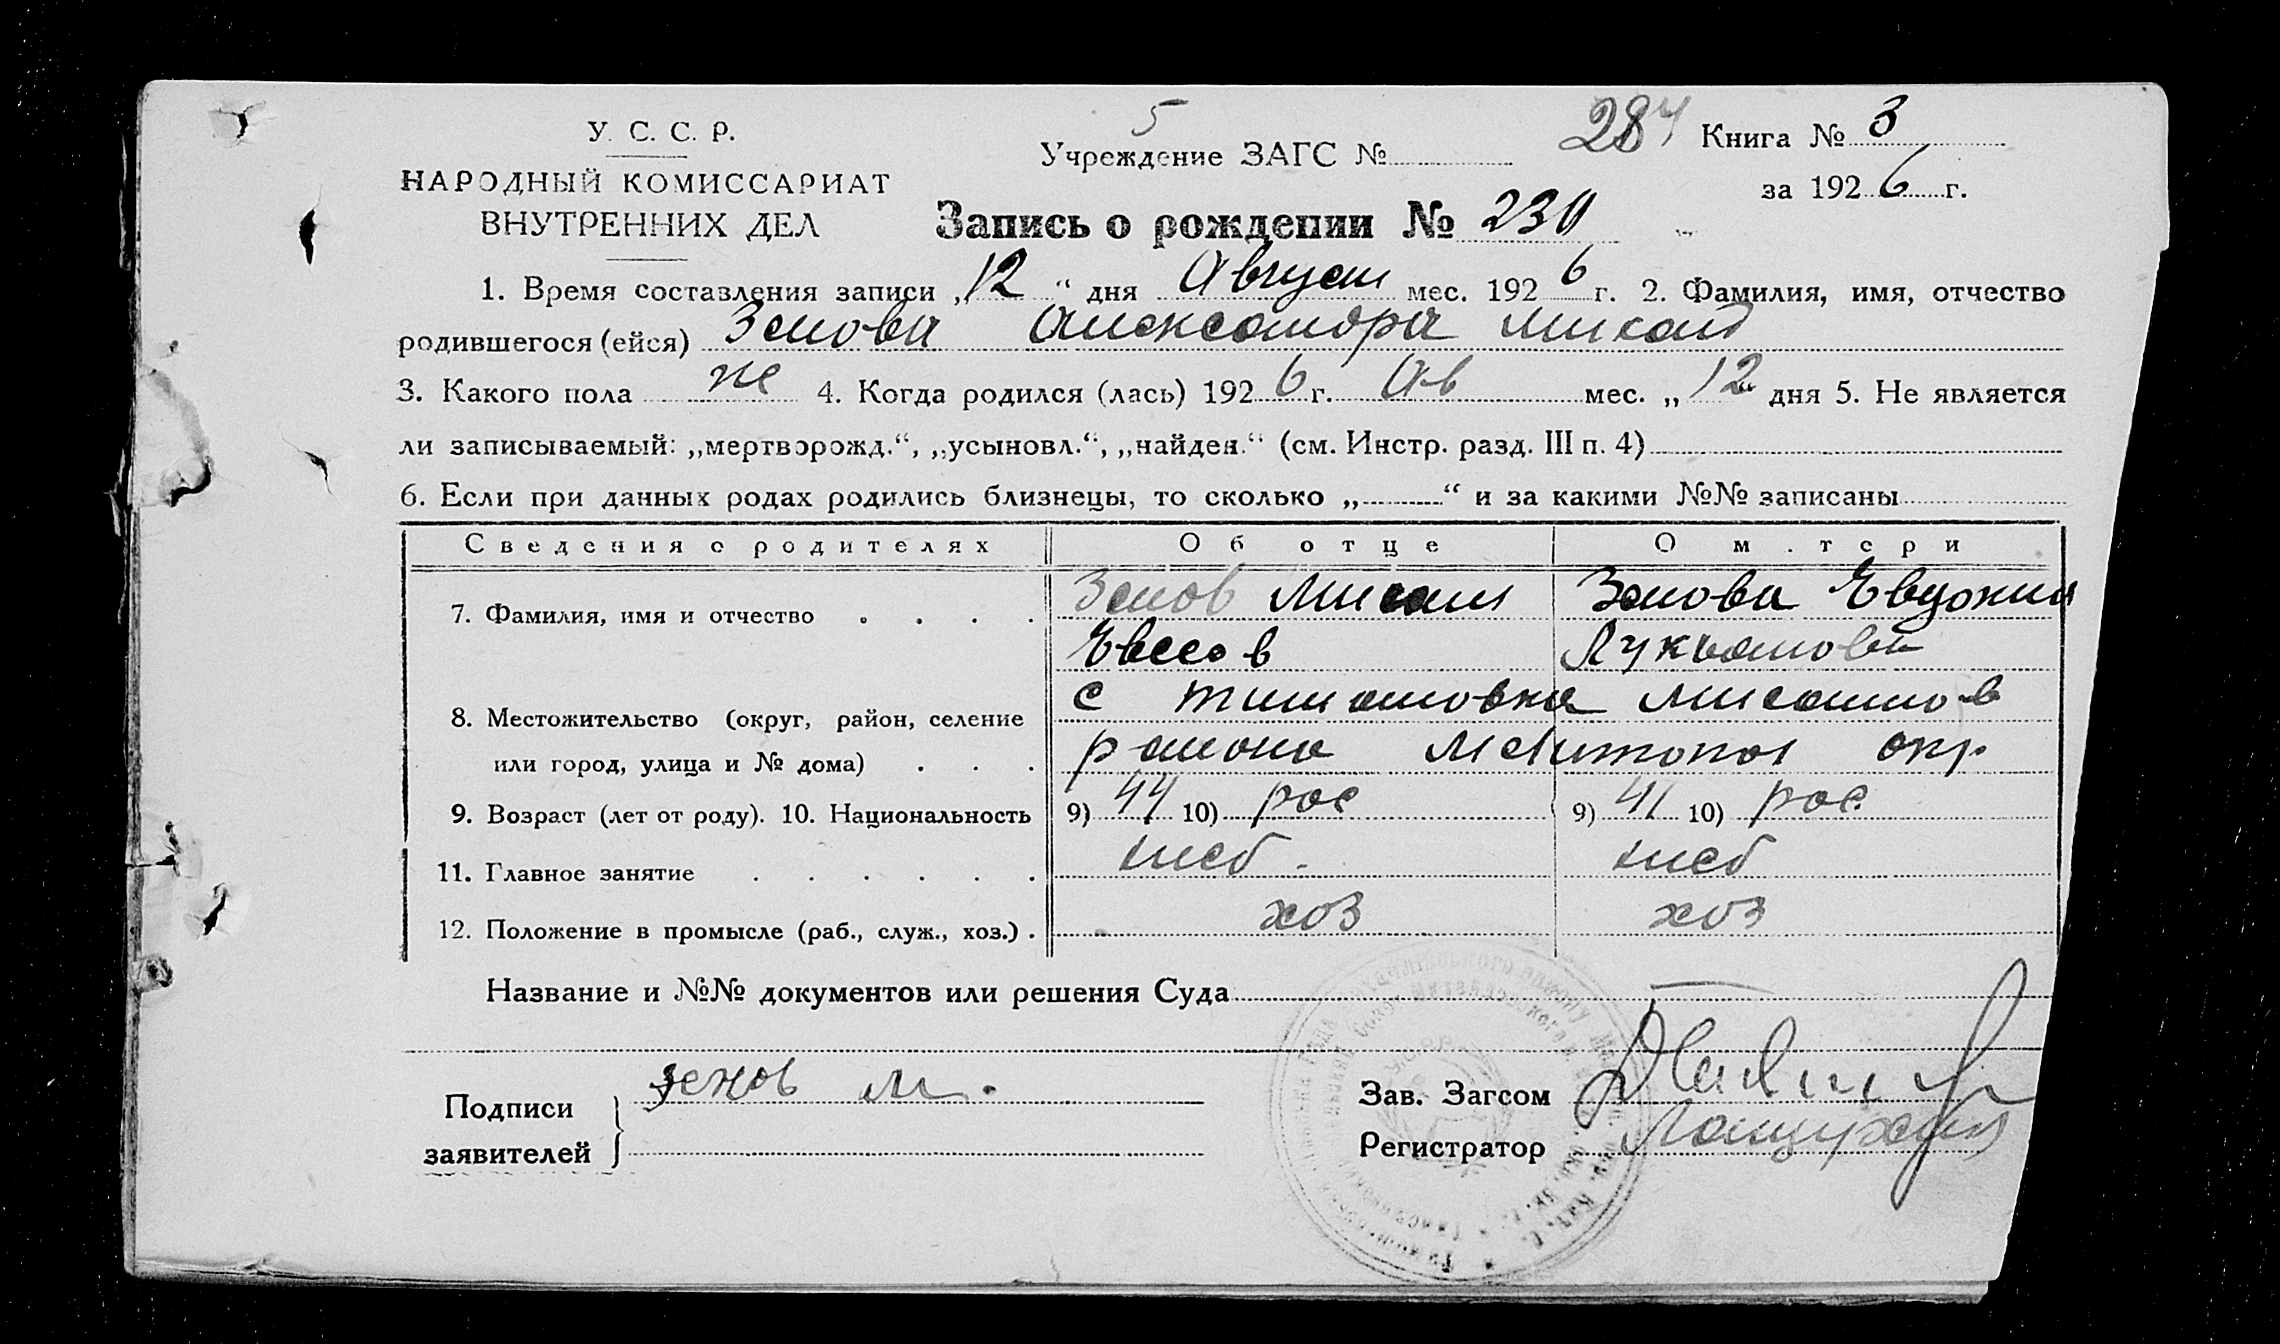 У. С. С. Р.
НАРОДНЫЙ КОМИССАРИАТ
ВНУТРЕННИХ ДЕЛ
5
Учреждение ЗАГС №
284
Книга № 3
за 1926 г.
Запись о рождении № 230
1. Время составления записи „12“ дня Август мес. 1926 г. 2. Фамилия, имя, отчество
родившегося (ейся) Зенова Александра Михаил
3. Какого пола же 4. Когда родился (лась) 1926 г. Ав мес. „12“ дня 5. Не является
ли записываемый: „мертворожд.“, „усыновл.“, „найден.“ (см. Инстр. разд. III п. 4)
6. Если при данных родах родились близнецы, то сколько „ “ и за какими №№ записаны
Сведения о родителях Об отце О м.тери
7. Фамилия, имя и отчество . . . . Зенов Михаил Зенова Евдокия
Евсеев Лукьянова
8. Местожительство (округ, район, селение с Тимашовка Михайлов
или город, улица и № дома) . . . района Мелитопол окр
9. Возраст (лет от роду). 10. Национальность 9) 44 10) рос 9) 41 10) рос
11. Главное занятие . . . . . . хлеб хлеб
12. Положение в промысле (раб., служ., хоз.) . хоз хоз
Название и №№ документов или решения Суда
Подписи заявителей } зенов м.
Зав. Загсом
Регистратор